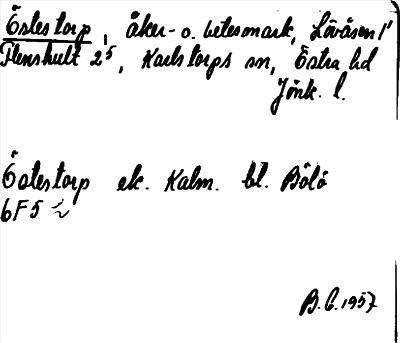 Östestorp, åker- o. betesmark, Lövåsen 1¹
Flenshult 2⁵, Karlstorps sn, Östra hd
Jönk. l.
Östestorp ek. Kalm. bl. Bölö
6F5
B.C. 1957